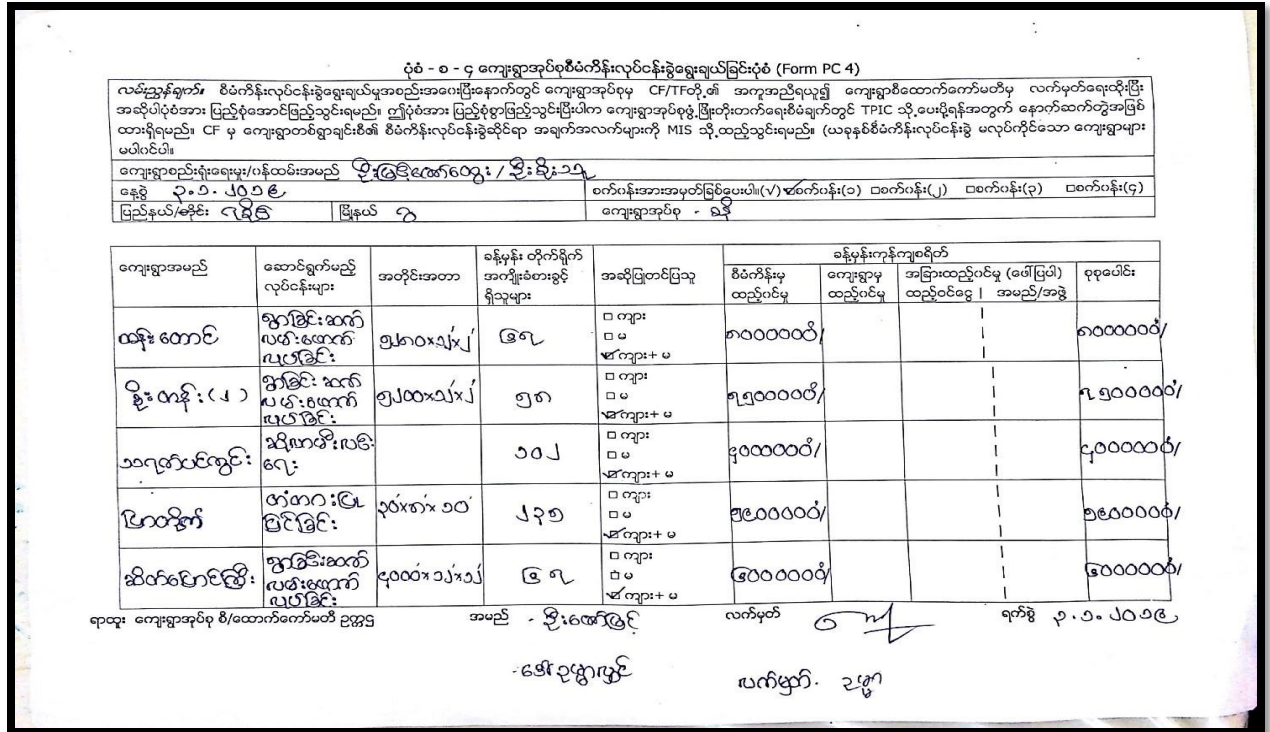 ပုံစံ - စ - ၄ ကျေးရွာအုပ်စုစီမံကိန်းလုပ်ငန်းခွဲရွေးချယ်ခြင်းပုံစံ (Form PC 4)
လမ်းညွှန်ချက်။ စီမံကိန်းလုပ်ငန်းခွဲရွေးချယ်မှုအစည်းအဝေးပြီးနောက်တွင် ကျေးရွာအုပ်စုမှ CF/TFတို့၏ အကူအညီရယူ၍ ကျေးရွာစီထောက်ကော်မတီမှ လက်မှတ်ရေးထိုးပြီး
အဆိုပါပုံစံအား ပြည့်စုံအောင်ဖြည့်သွင်းရမည်။ ဤပုံစံအား ပြည့်စုံစွာဖြည့်သွင်းပြီးပါက ကျေးရွာအုပ်စုဖွံ့ဖြိုးတိုးတက်ရေးစီမံချက်တွင် TPIC သို့ပေးပို့ရန်အတွက် နောက်ဆက်တွဲအဖြစ်
ထားရှိရမည်။ CF မှ ကျေးရွာတစ်ရွာချင်းစီ၏ စီမံကိန်းလုပ်ငန်းခွဲဆိုင်ရာ အချက်အလက်များကို MIS သို့ထည့်သွင်းရမည်။ (ယခုနှစ်စီမံကိန်းလုပ်ငန်းခွဲ မလုပ်ကိုင်သော ကျေးရွာများ
မပါဝင်ပါ။
ကျေးရွာစည်းရုံးရေးမှူး/ဝန်ထမ်းအမည် / ဦးစိုးသူ
နေ့စွဲ ၃.၁.၂၀၁၉ စက်ဝန်းအားအမှတ်ခြစ်ပေးပါ။(√) ☑စက်ဝန်း(၁) □စက်ဝန်း(၂) □စက်ဝန်း(၃) □စက်ဝန်း(၄)
ပြည်နယ်/တိုင်း ရခိုင် မြို့နယ် ဂွ ကျေးရွာအုပ်စု - ခနီ
ကျေးရွာအမည် ဆောင်ရွက်မည့် လုပ်ငန်းများ အတိုင်းအတာ ခန့်မှန်း တိုက်ရိုက် အကျိုးခံစားခွင့် ရှိသူများ အဆိုပြုတင်ပြသူ ခန့်မှန်းကုန်ကျစရိတ်
စီမံကိန်းမှ ထည့်ဝင်မှု ကျေးရွာမှ ထည့်ဝင်မှု အခြားထည့်ဝင်မှု (ဖေါ်ပြပါ) ထည့်ဝင်ငွေ | အမည်/အဖွဲ့ စုစုပေါင်း
ထန်းတောင် ရွာခြင်းဆက် လမ်းဖောက် လုပ်ခြင်း ၅၂၈၀'x၁၂'x၂' ၆၇ □ ကျား □ မ ☑ ကျား+ မ ၈၀၀၀၀၀၀ိ/ ၈၀၀၀၀၀၀ိ/
စိုးတန်း(၂) ရွာခြင်းဆက် လမ်းဖောက် လုပ်ခြင်း ၅၂၀၀'x၁၂'x၂' ၅၈ □ ကျား □ မ ☑ ကျား+ မ ၇၅၀၀၀၀၀ိ/ ၇၅၀၀၀၀၀ိ/
ဆိုလာမီးလင်းရေး ၁၀၂ □ ကျား □ မ ☑ ကျား+ မ ၄၀၀၀၀၀၀ိ/ ၄၀၀၀၀၀၀ိ/
တံတားပြုပြင်ခြင်း ၃၀'x၈'x ၁၀' ၂၃၅ □ ကျား □ မ ☑ ကျား+ မ ၅၉၀၀၀၀၀ိ/ ၅၉၀၀၀၀၀ိ/
ဆိတ်ပြောင်ကြီး ရွာခြင်းဆက် လမ်းဖောက် လုပ်ခြင်း ၄၀၀၀'x၁၂'x၁၂ ၆၇ □ ကျား □ မ ☑ ကျား+ မ ၆၀၀၀၀၀၀ိ/ ၆၀၀၀၀၀၀ိ/
ရာထူး ကျေးရွာအုပ်စု စီ/ထောက်ကော်မတီ ဥက္ကဋ္ဌ အမည် - ဦးဇော်မြင့် လက်မှတ် ရက်စွဲ ၃.၁.၂၀၁၉
- ဒေါ်ဥမ္မာလွင် လက်မှတ်. ဥမ္မာ